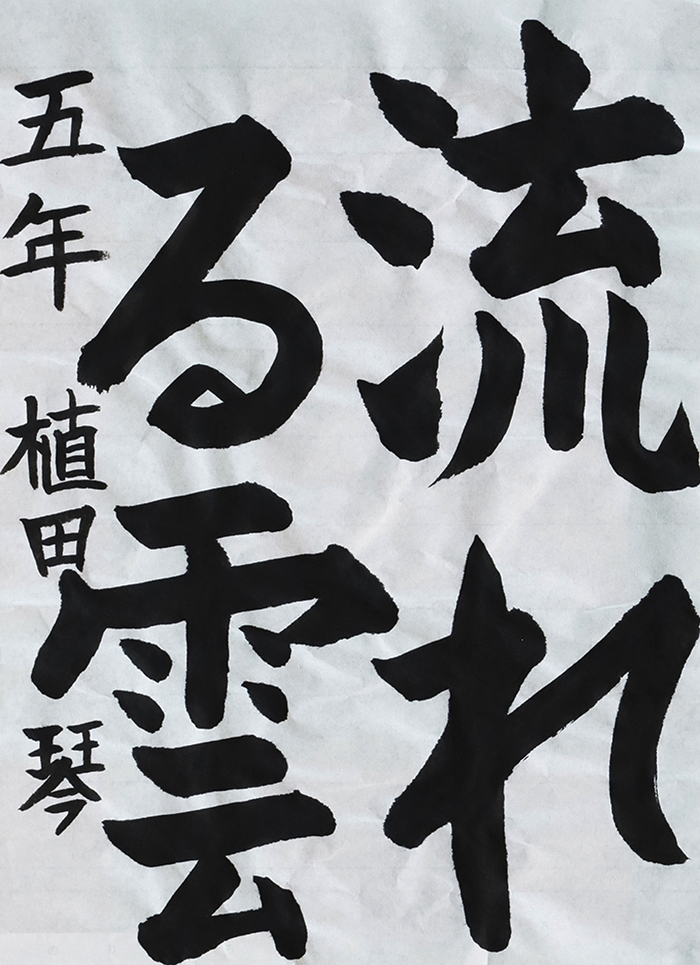 流れ
る雲
五年 植田 琴